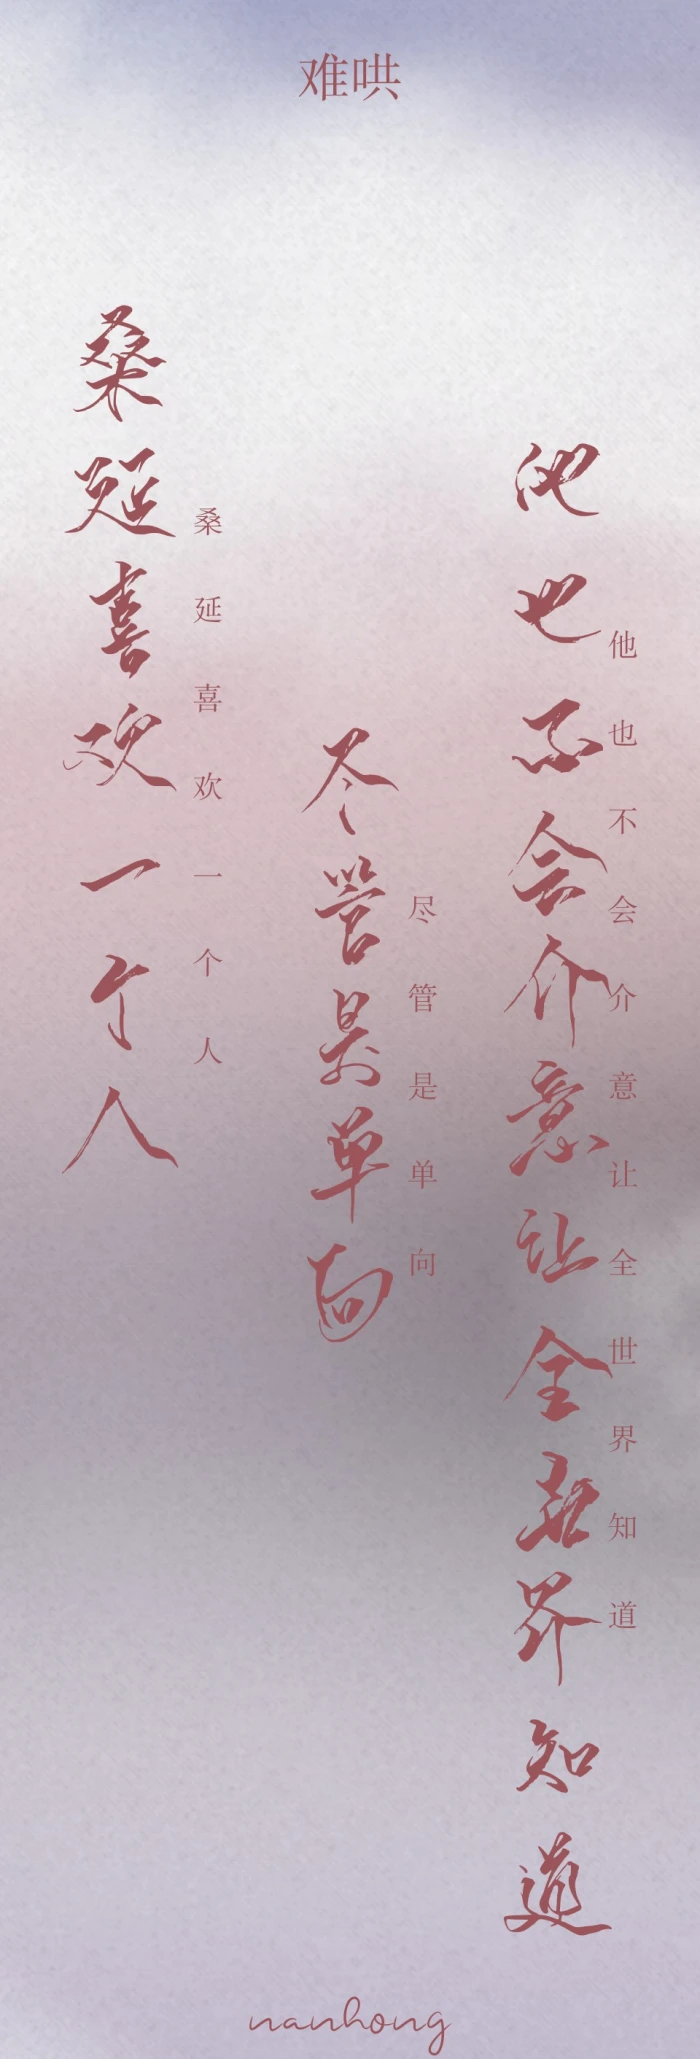 难哄
桑延喜欢一个人
桑延喜欢一个人
尽管是单向
尽管是单向
他也不会介意让全世界知道
他也不会介意让全世界知道
nanhong